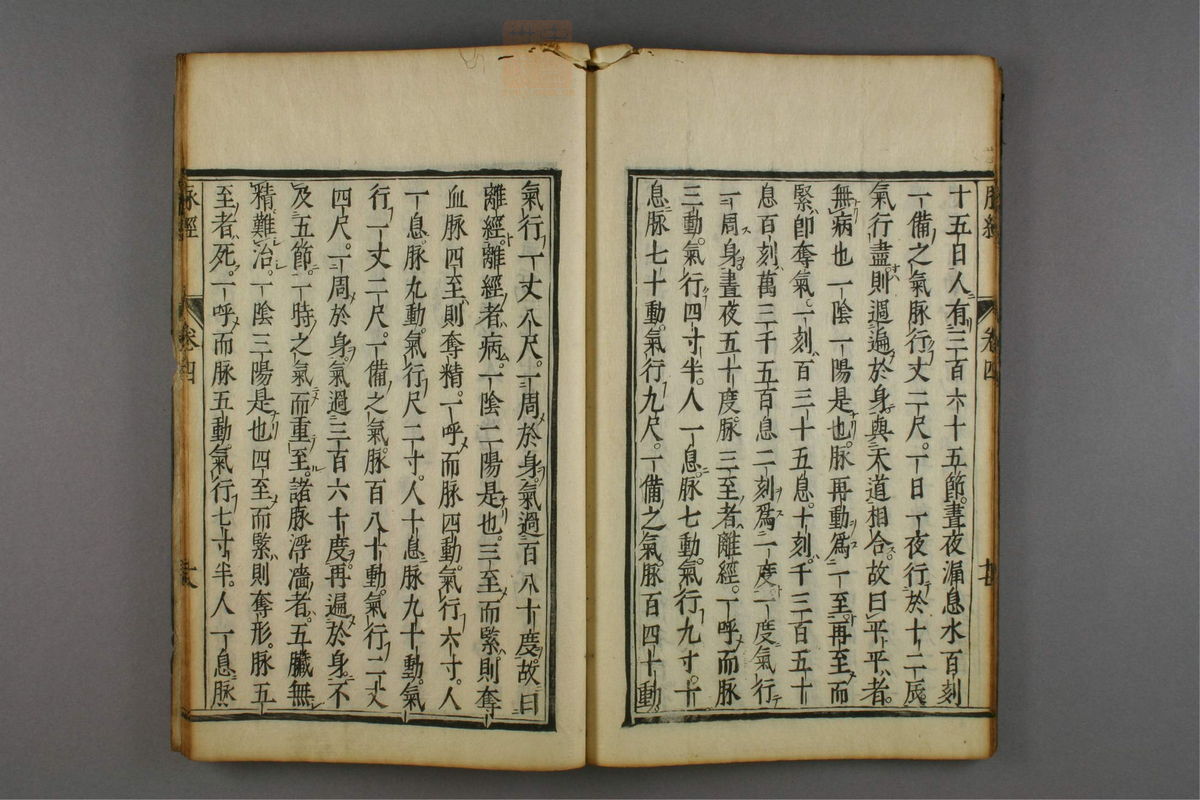 十五日人有三百六十五節晝夜漏息水百刻
一備之氣脉行丈二尺一日一夜行於十二辰
氣行盡則週遍於身與天道相合故曰平平者
無病也一陰一陽是也脉再動爲一至再至而
緊卽奪氣一刻百三十五息十刻千三百五十
息百刻萬三千五百息二刻爲一度一度氣行
一周身晝夜五十度脉三至者離經一呼而脉
三動氣行四寸半人一息脉七動氣行九寸十
息脉七十動氣行九尺一備之氣脉百四十動
氣行一丈八尺一周於身氣過百八十度故曰
離經離經者病一陰二陽是也三至而緊則奪
血脉四至則奪精一呼而脉四動氣行六寸人
一息脉九動氣行尺二寸人十息脉九十動氣
行一丈二尺一備之氣脉百八十動氣行二丈
四尺一周於身氣過三百六十度再遍於身不
及五節一時之氣而重至諸脉浮濇者五臟無
精難治一陰三陽是也四至而緊則奪形脉五
至者死一呼而脉五動氣行七寸半人一息脉
脉經 卷四